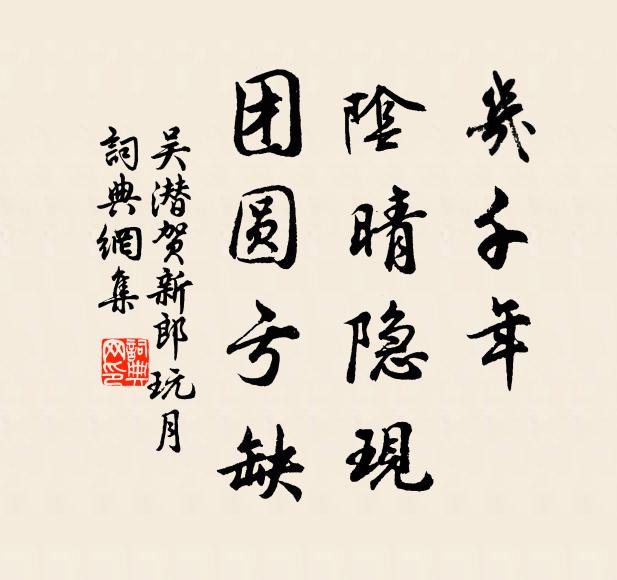 幾千年
陰晴隐現
团圆亏缺
吴潜贺新郎玩月
詞典網集
詞典
网印